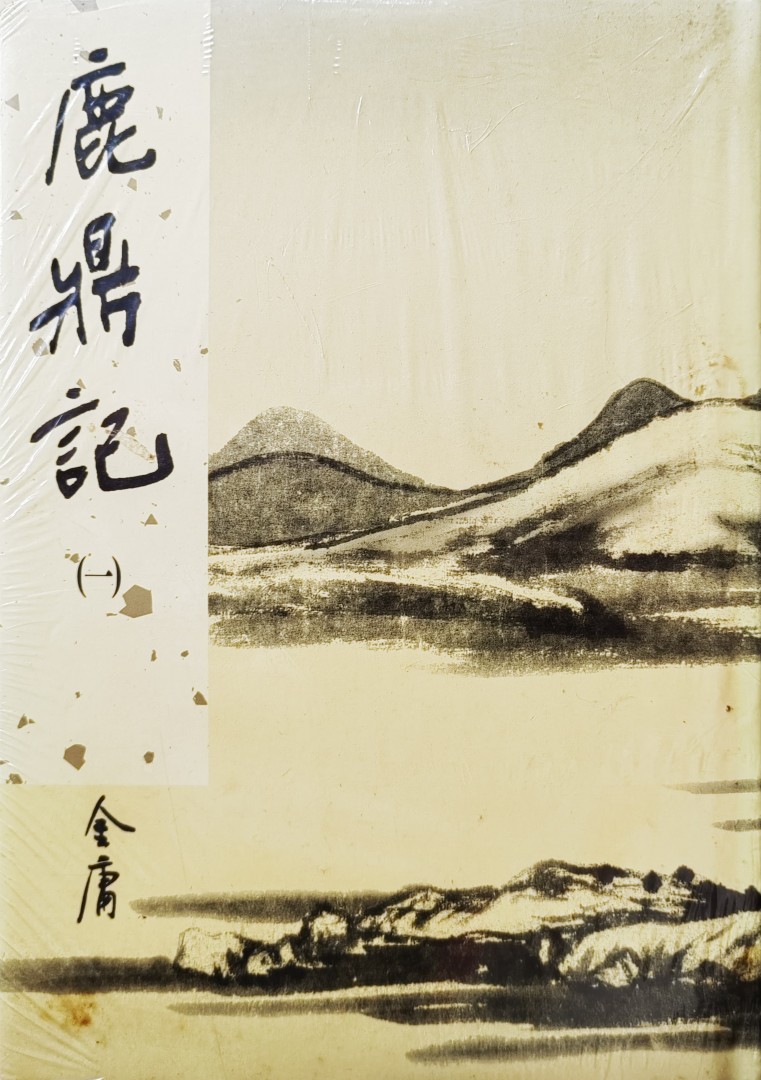 鹿鼎記
㈠
金庸